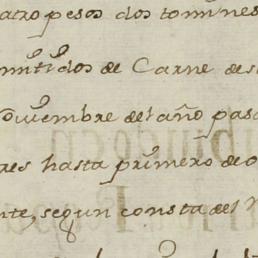 atro pesos dos tomines
de Carne de
Noviembre del año pas
res hasta primero de
nte, segun consta del